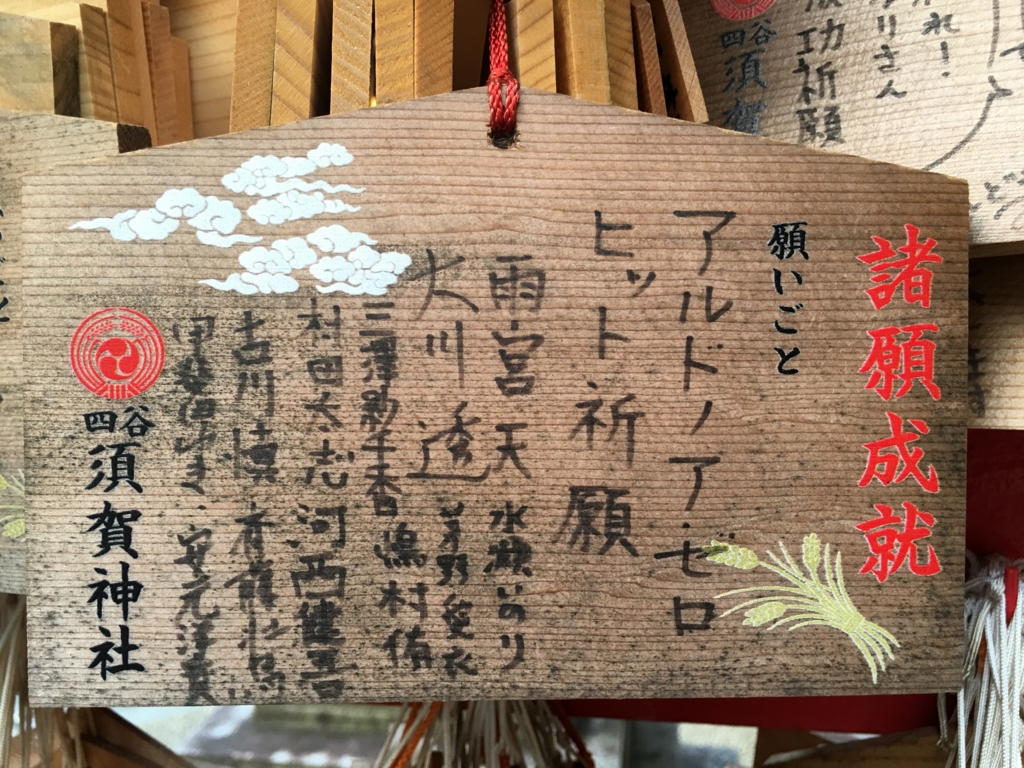 諸願成就
願いごと
アルドノア・ゼロ
ヒット祈願
雨宮天 水瀬いのり
大川透 茅野愛衣
三澤紗千香 嶋村侑
村田太志 河西健吾
古川慎 斉藤壮馬
甲斐田ゆき・安元洋貴
四谷
須賀神社
れ！
りさん
功祈願
四谷
須賀